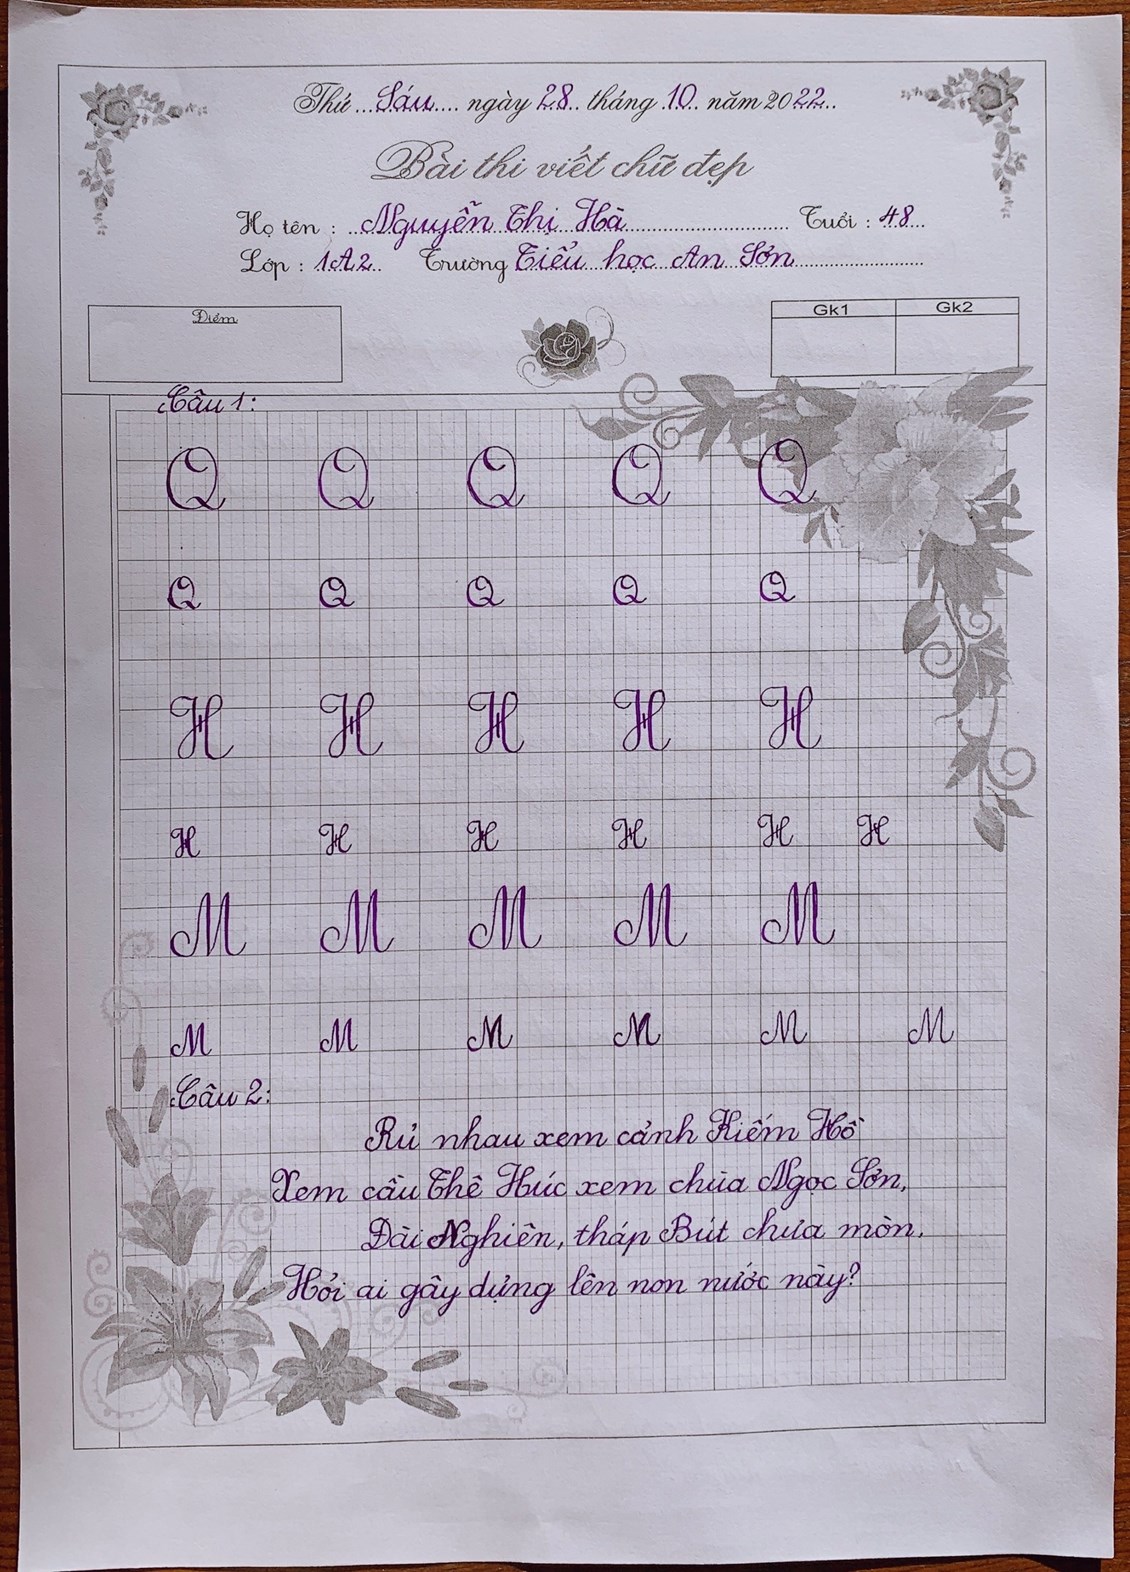 Thứ ... Sáu .... ngày 28.. tháng 10.. năm 2022..
Bài thi viết chữ đẹp
Họ tên : ..Nguyễn Thị Hà.......... Tuổi : 48...
Lớp : 1A2.. Trường Tiểu học An Sơn..........
Điểm
Gk1 Gk2
Câu 1:
Q Q Q Q Q
Q Q Q Q Q
H H H H H
H H H H H H
M M M M M
M M M M M M
Câu 2:
Rủ nhau xem cảnh Kiếm Hồ
Xem cầu Thê Húc xem chùa Ngọc Sơn,
Đài Nghiên, tháp Bút chưa mòn,
Hỏi ai gây dựng lên non nước này?